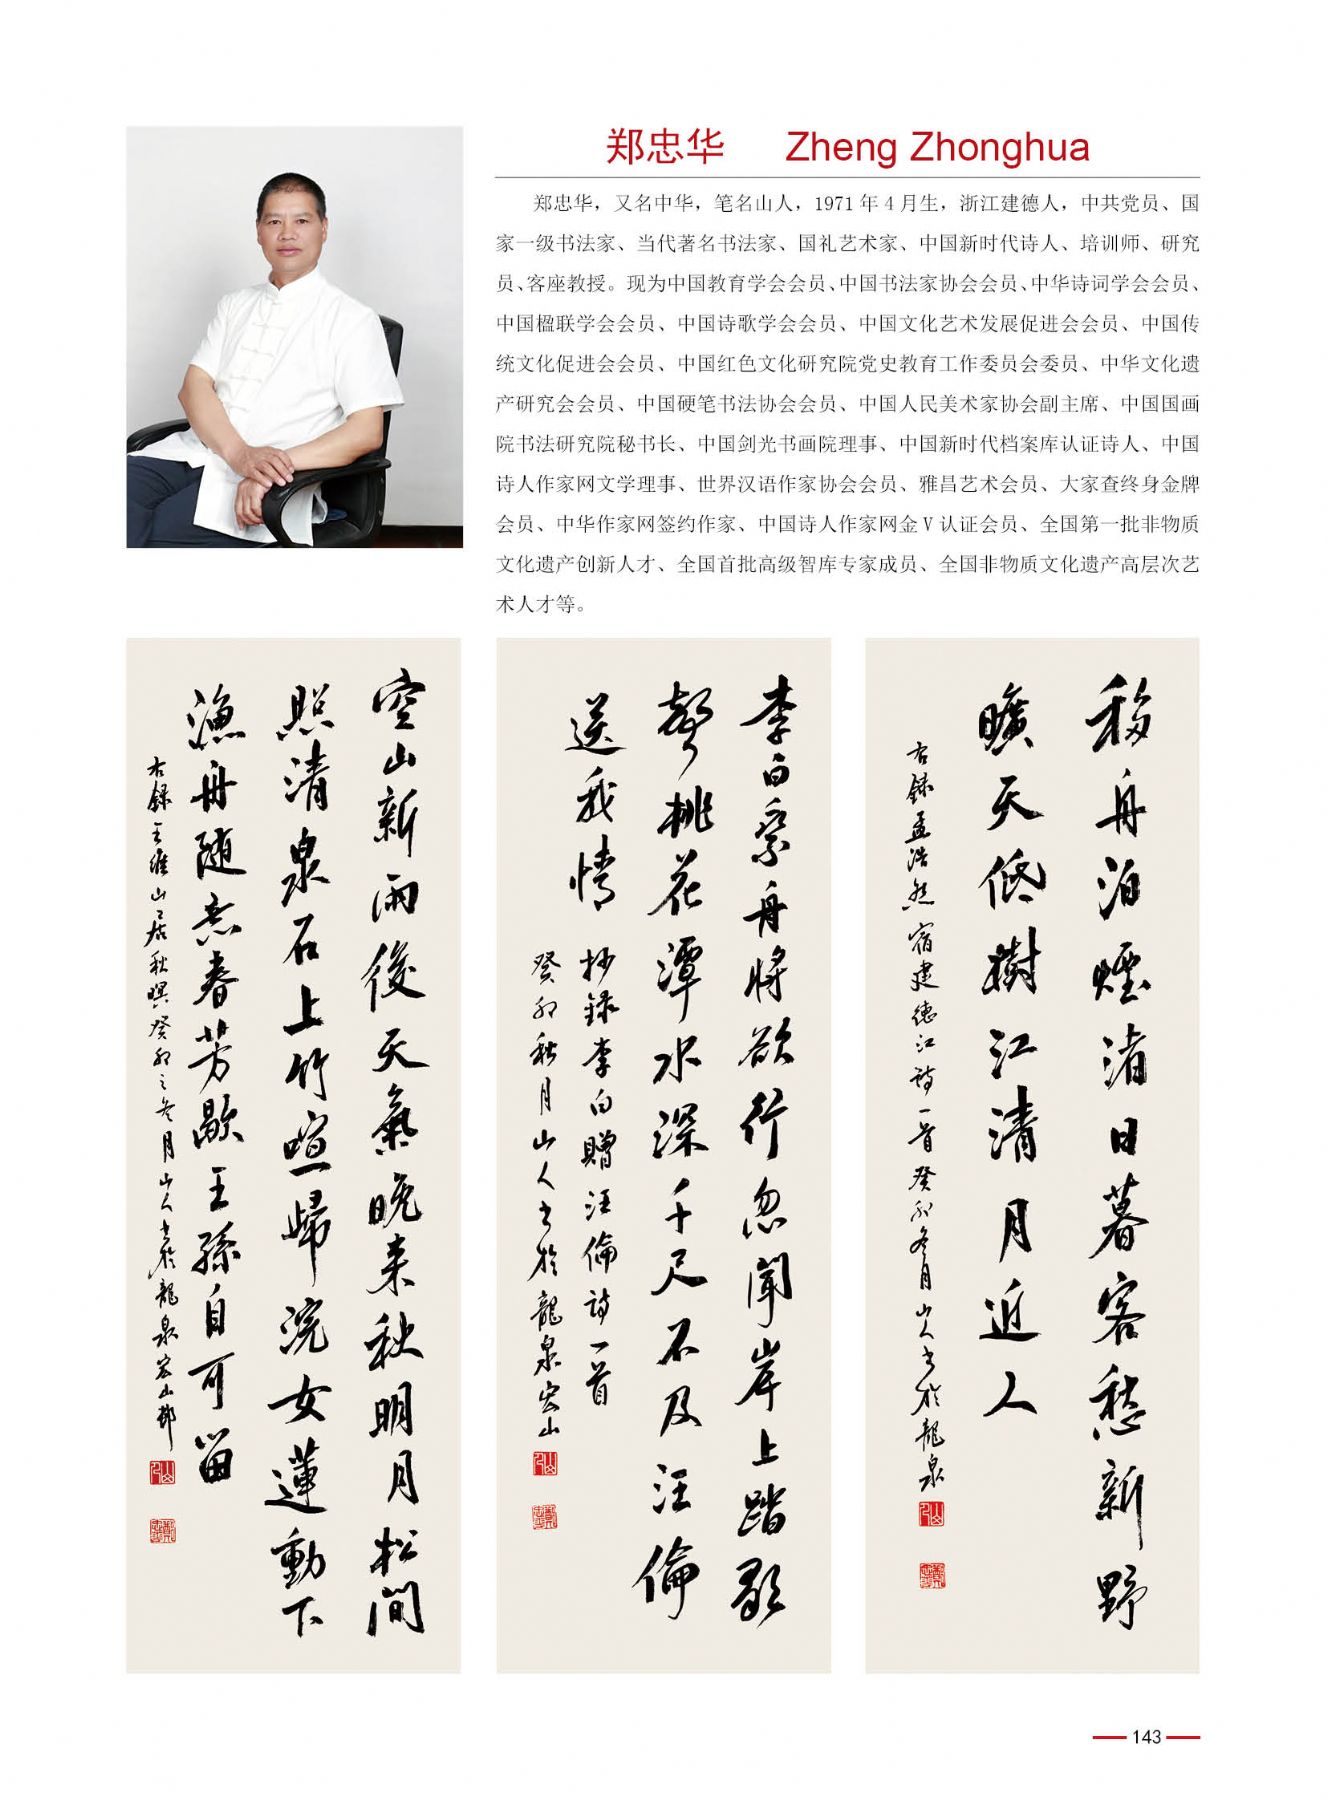 郑忠华 Zheng Zhonghua
郑忠华，又名中华，笔名山人，1971年4月生，浙江建德人，中共党员、国
家一级书法家、当代著名书法家、国礼艺术家、中国新时代诗人、培训师、研究
员、客座教授。现为中国教育学会会员、中国书法家协会会员、中华诗词学会会员、
中国楹联学会会员、中国诗歌学会会员、中国文化艺术发展促进会会员、中国传
统文化促进会会员、中国红色文化研究院党史教育工作委员会委员、中华文化遗
产研究会会员、中国硬笔书法协会会员、中国人民美术家协会副主席、中国国画
院书法研究院秘书长、中国剑光书画院理事、中国新时代档案库认证诗人、中国
诗人作家网文学理事、世界汉语作家协会会员、雅昌艺术会员、大家查终身金牌
会员、中华作家网签约作家、中国诗人作家网金V认证会员、全国第一批非物质
文化遗产创新人才、全国首批高级智库专家成员、全国非物质文化遗产高层次艺
术人才等。
空山新雨後天氣晚来秋明月松间
照清泉石上竹喧歸浣女蓮動下
渔舟随意春芳歇王孫自可留
右録王維山居秋暝癸卯之冬月山人书於龍泉宏山邨
李白乘舟将欲行忽聞岸上踏歌
聲桃花潭水深千尺不及汪倫
送我情
抄録李白贈汪倫詩一首
癸卯秋月山人书於龍泉宏山
移舟泊煙渚日暮客愁新野
曠天低樹江清月近人
右録孟浩然宿建德江詩一首癸卯冬月山人书於龍泉
143